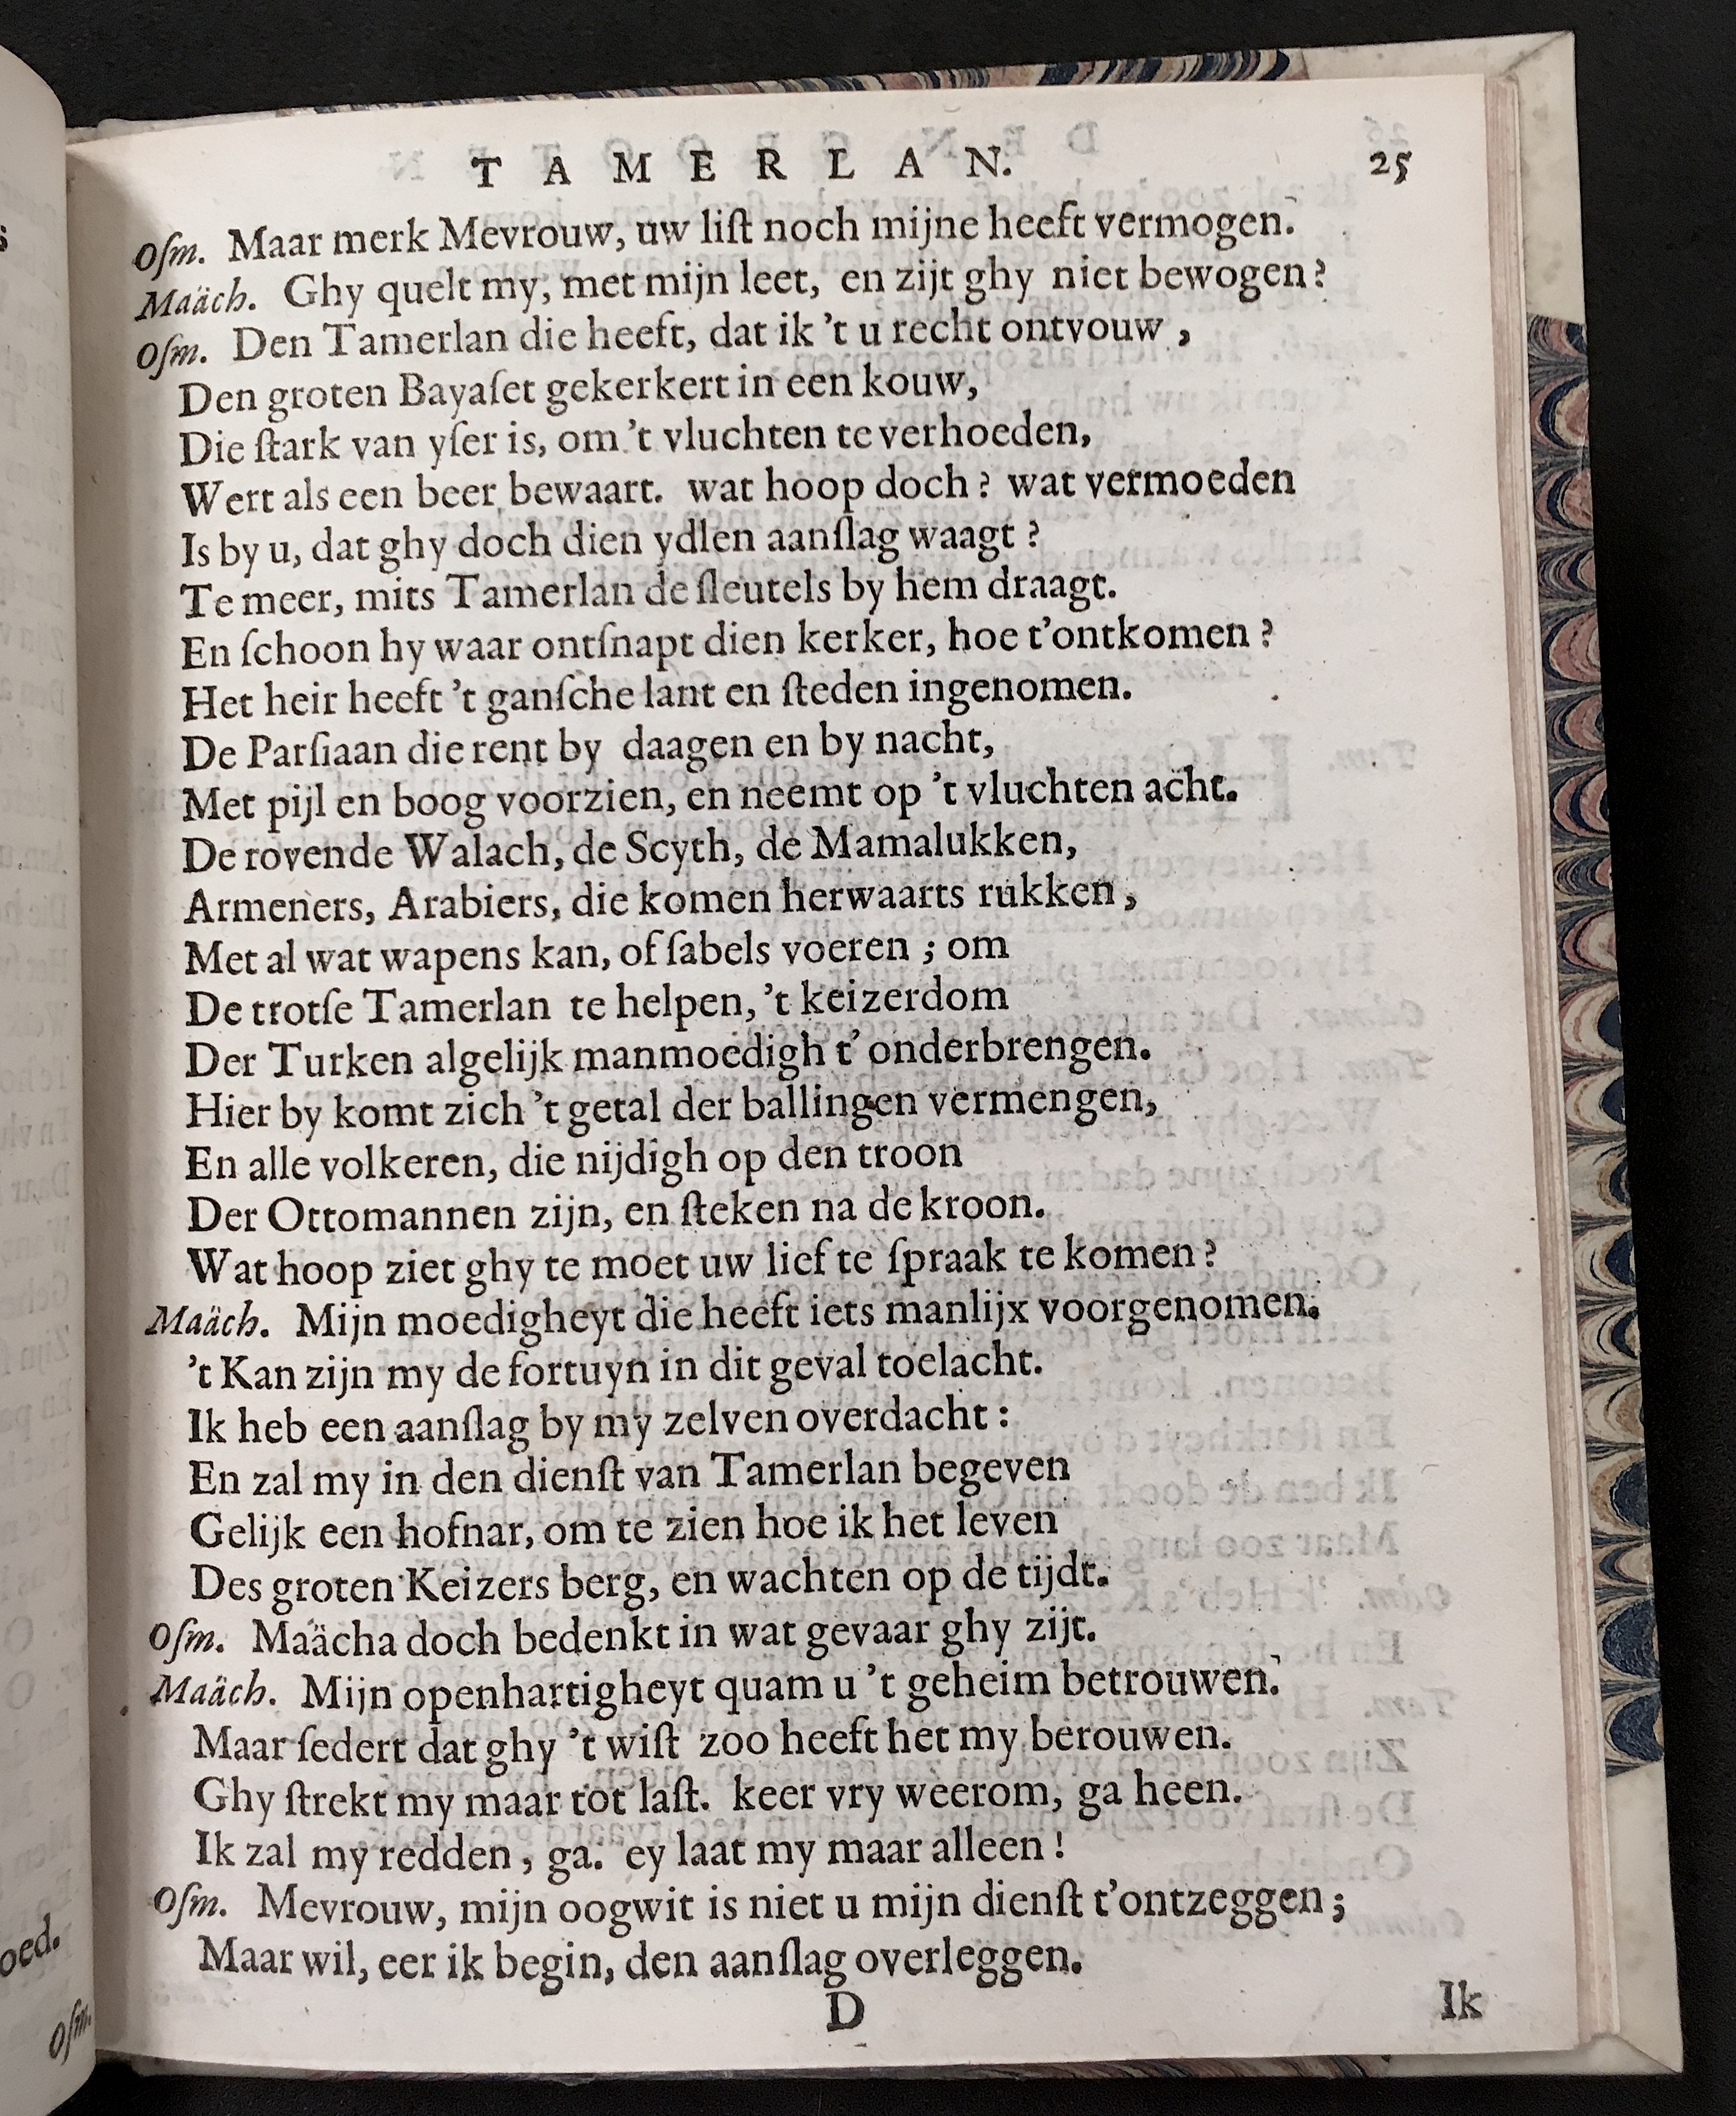 TAMERLAN. 25
Oſm. Maar merk Mevrouw, uw liſt noch mijne heeft vermogen.
Maäch. Ghy quelt my, met mijn leet, en zijt ghy niet bewogen?
Oſm. Den Tamerlan die heeft, dat ik 't u recht ontvouw,
Den groten Bayaſet gekerkert in een kouw,
Die ſtark van yſer is, om 't vluchten te verhoeden,
Wert als een beer bewaart. wat hoop doch? wat vermoeden
Is by u, dat ghy doch dien ydlen aanſlag waagt?
Te meer, mits Tamerlan de ſleutels by hem draagt.
En ſchoon hy waar ontſnapt dien kerker, hoe t'ontkomen?
Het heir heeft 't ganſche lant en ſteden ingenomen.
De Parſiaan die rent by daagen en by nacht,
Met pijl en boog voorzien, en neemt op 't vluchten acht.
De rovende Walach, de Scyth, de Mamalukken,
Armeners, Arabiers, die komen herwaarts rukken,
Met al wat wapens kan, of ſabels voeren; om
De trotſe Tamerlan te helpen, 't keizerdom
Der Turken algelijk manmoedigh t'onderbrengen.
Hier by komt zich 't getal der ballingen vermengen,
En alle volkeren, die nijdigh op den troon
Der Ottomannen zijn, en ſteken na de kroon.
Wat hoop ziet ghy te moet uw lief te ſpraak te komen?
Maäch. Mijn moedigheyt die heeft iets manlijx voorgenomen.
't Kan zijn my de fortuyn in dit geval toelacht.
Ik heb een aanſlag by my zelven overdacht:
En zal my in den dienſt van Tamerlan begeven
Gelijk een hofnar, om te zien hoe ik het leven
Des groten Keizers berg, en wachten op de tijdt.
Oſm. Maächa doch bedenkt in wat gevaar ghy zijt.
Maäch. Mijn openhartigheyt quam u 't geheim betrouwen.
Maar ſedert dat ghy 't wiſt zoo heeft het my berouwen.
Ghy ſtrekt my maar tot laſt. keer vry weerom, ga heen.
Ik zal my redden, ga. ey laat my maar alleen!
Oſm. Mevrouw, mijn oogwit is niet u mijn dienſt t'ontzeggen;
Maar wil, eer ik begin, den aanſlag overleggen.
D
Ik
oed.
Oſm.